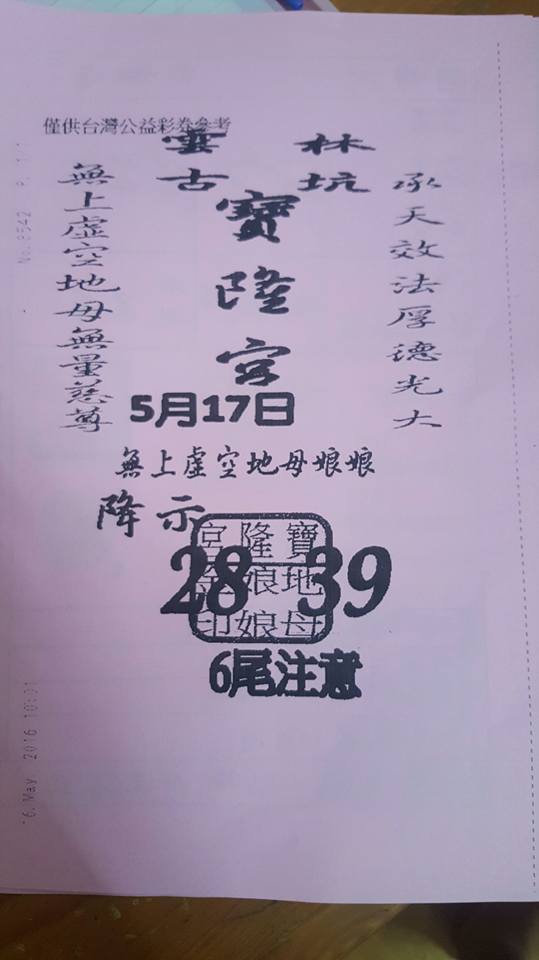 僅供台灣公益彩券參考
雲林
古坑
寶隆宮
承天效法厚德光大
無上虛空地母無量慈尊
5月17日
無上虛空地母娘娘
降示
28 39
寶隆宮
地娘
母娘印
6尾注意
No.8542 P. 1/1
16. May 2016 10:01